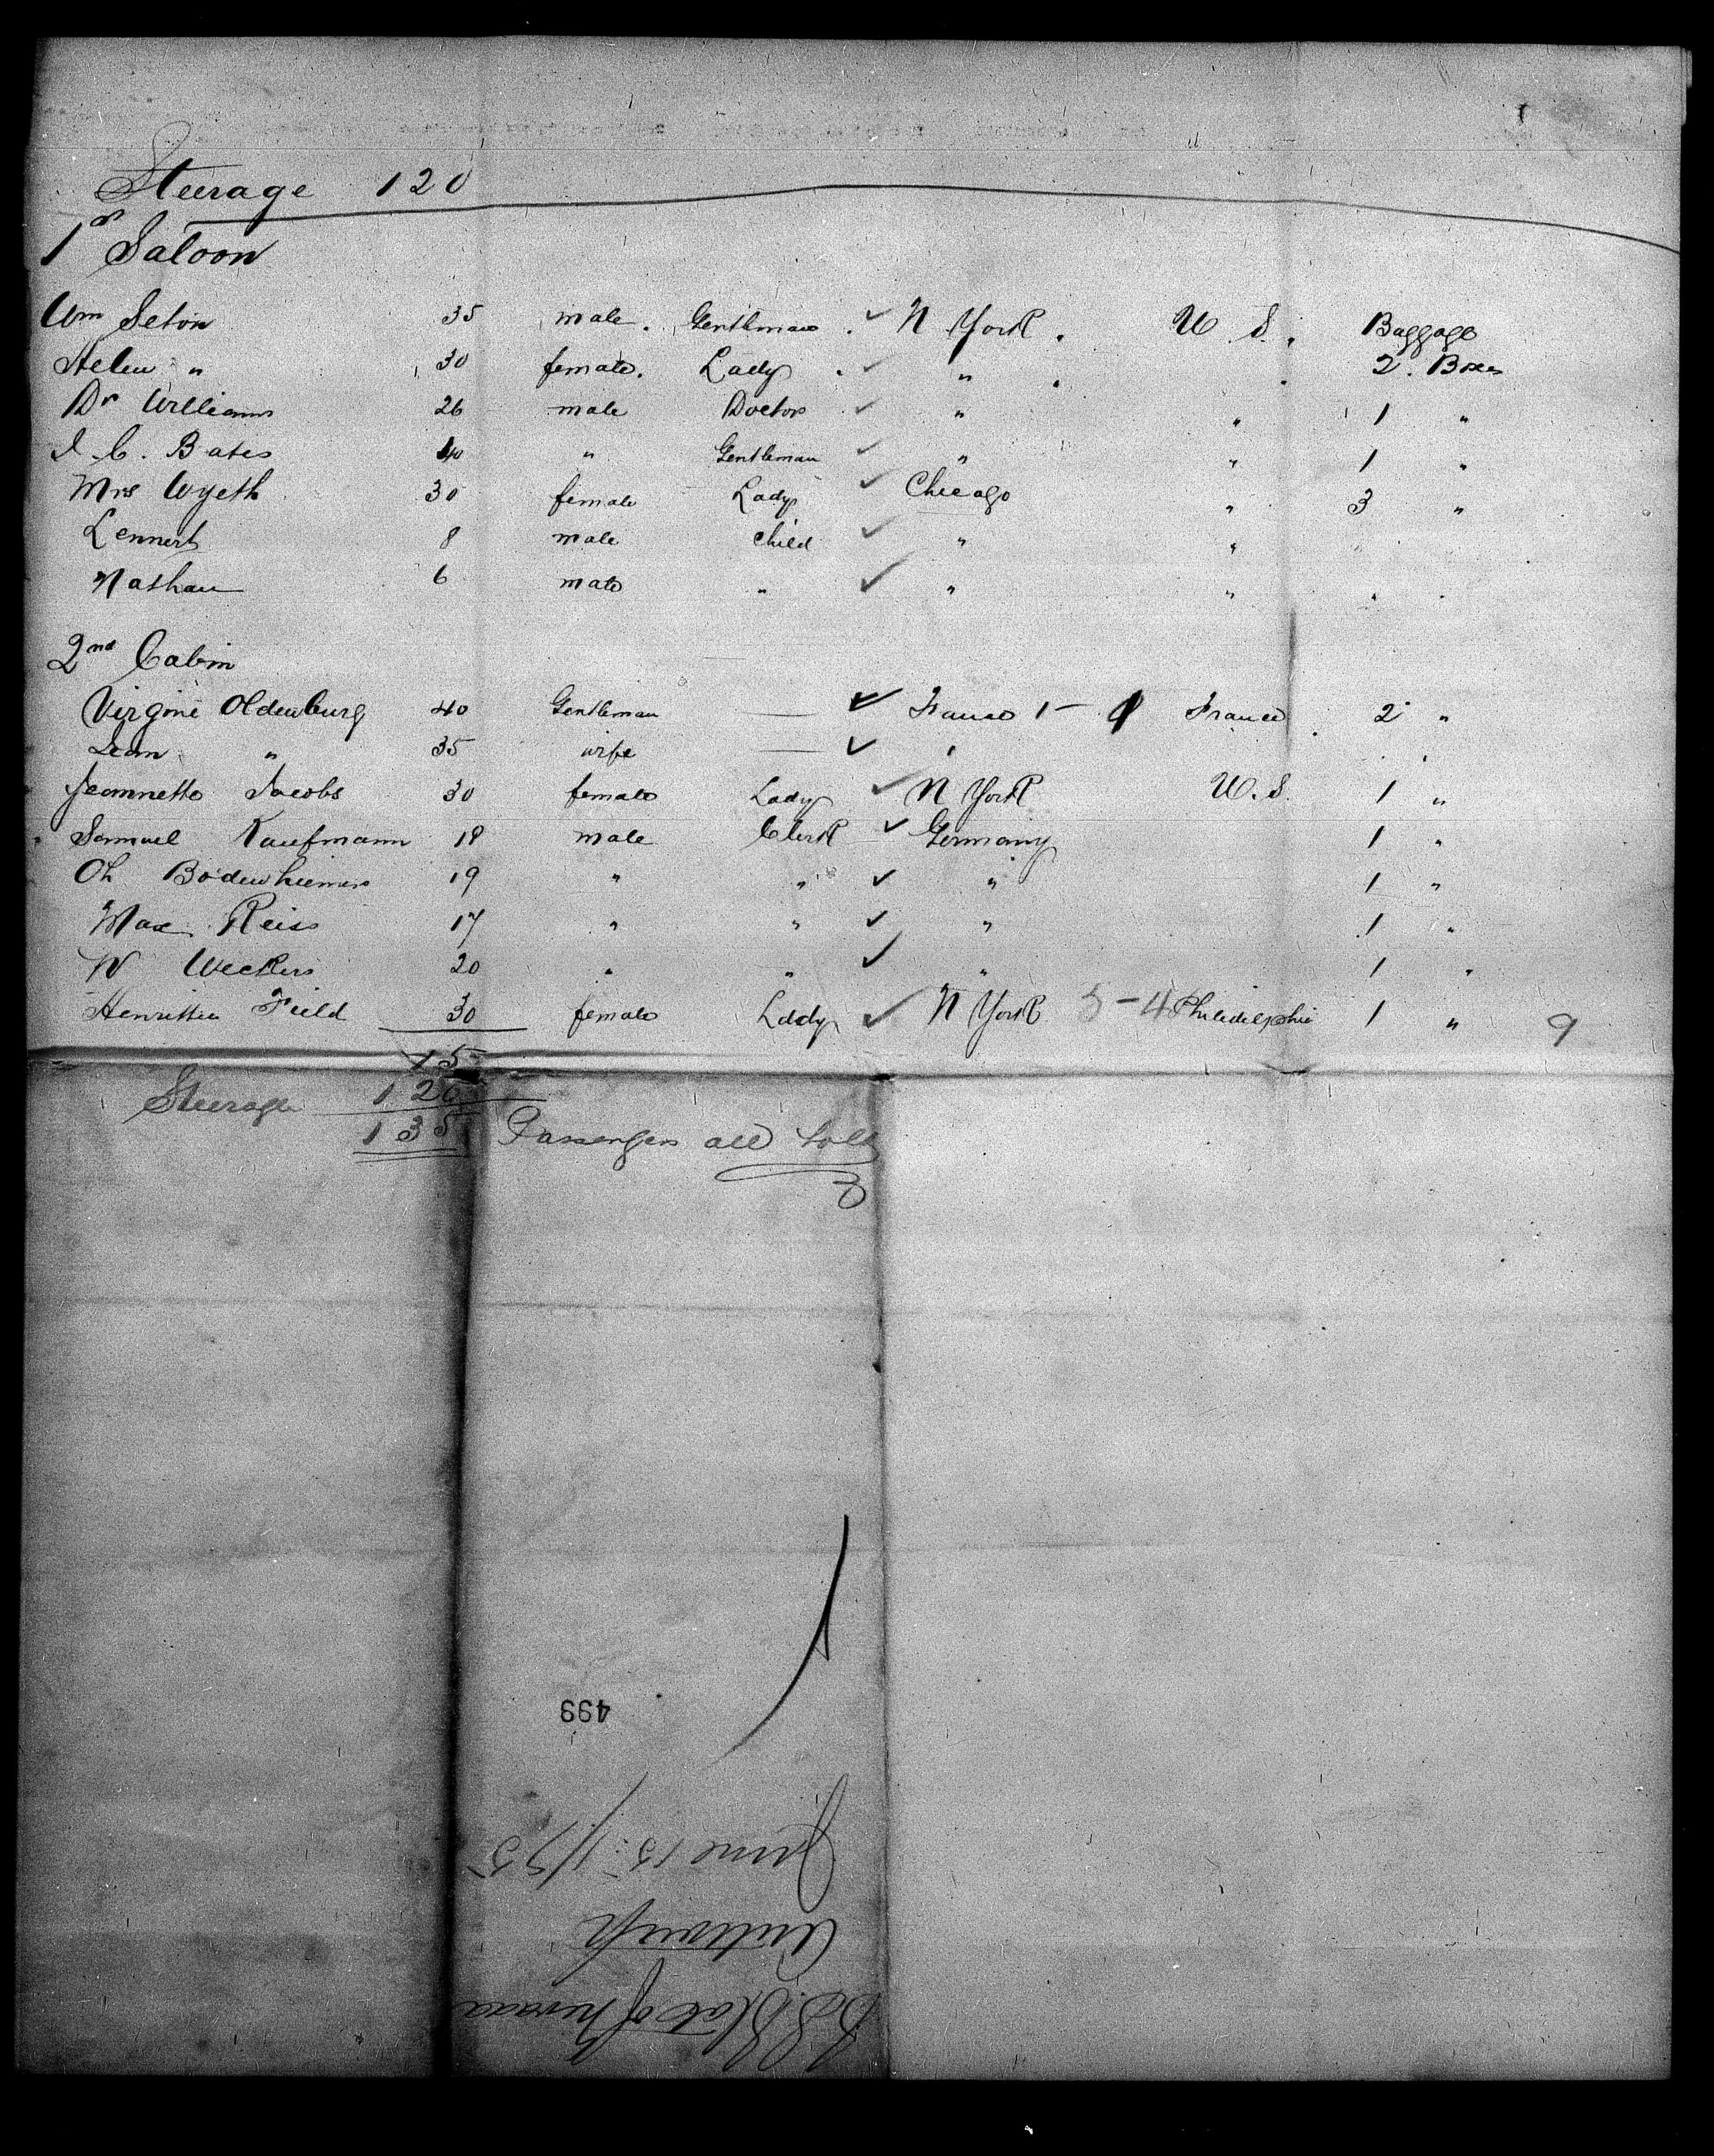 Steerage 120
1st Saloon
Wm Seton 35 male. Gentleman. ✓ N York. U S. Baggage
Helen " 30 female. Lady. ✓ " 2. Boxes
Dr Williams 26 male Doctor ✓ " " 1 "
J. C. Bates 40 " Gentleman ✓ " " 1 "
Mrs Wyeth 30 female Lady ✓ Chicago " 3 "
Lennert 8 male Child ✓ " "
Nathan 6 male " ✓ " " " "
2nd Cabin
Virgine Oldenburg 40 Gentleman — ✓ France 1 - 1 France 2 "
Leon " 35 wife — ✓ "
Jeannette Jacobs 30 female Lady ✓ N York U.S. 1 "
Samuel Kaufmann 18 male Clerk ✓ Germany 1 "
Ch Bodenheimer 19 " " ✓ " 1 "
Max Reiss 17 " " ✓ " 1 "
W Weckers 20 " " ✓ " 1 "
Henrietta Field 30 female Lady ✓ N York 5-4 Philidelphia 1 " 9
15
Steerage 120
135 Passengers all told
499
S.S. State of Nevada
June 15